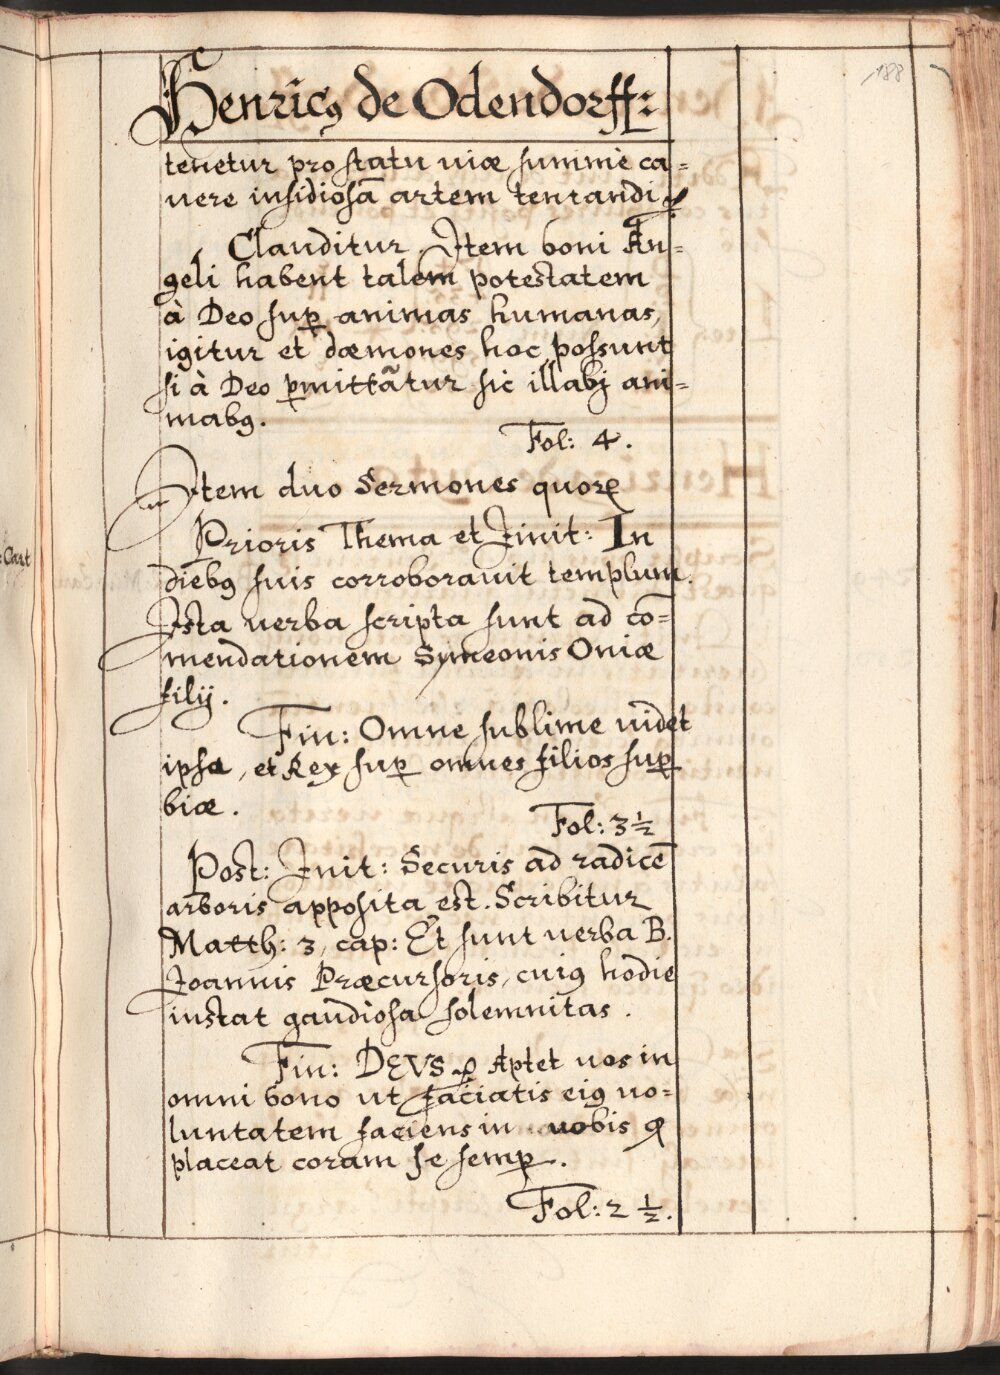 188
Henricꝰ de Odendorff:
tenetur pro statu uiæ summè ca=
uere insidiosã artem tentandi
Clauditur. Item boni An=
geli habent talem potestatem
à Deo suꝑ animas humanas,
igitur et dæmones hoc possunt
si à Deo ꝑmittãtur sic illabj ani=
mabꝰ.
Fol: 4.
Item duo Sermones quorꝝ
Prioris Thema et Jinit: In
diebꝰ suis corroborauit templum.
Ista uerba scripta sunt ad co̅=
mendationem Symeonis Oniæ
filij.
Fin: Omne sublime uidet
ipse, et Rex suꝑ omnes filios suꝑ
biæ.
Fol: 3½
Post: Jnit: Securis ad radice̅
arboris apposita est. Scribitur
Matth: 3, cap: Et sunt uerba B.
Joannis Præcursoris, cuiꝰ hodie
instat gaudiosa solemnitas.
Fin: DEVS ꝓ Aptet uos in
omni bono ut faciatis eiꝰ uo=
luntatem faciens in uobis ꝙ
placeat coram se semꝑ.
Fol: 2 ½.
: Cart